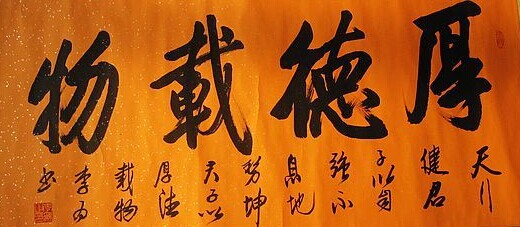 厚德載物
天行
健君
子以自
強不
息地
势坤
君子以
厚德
载物
李
书